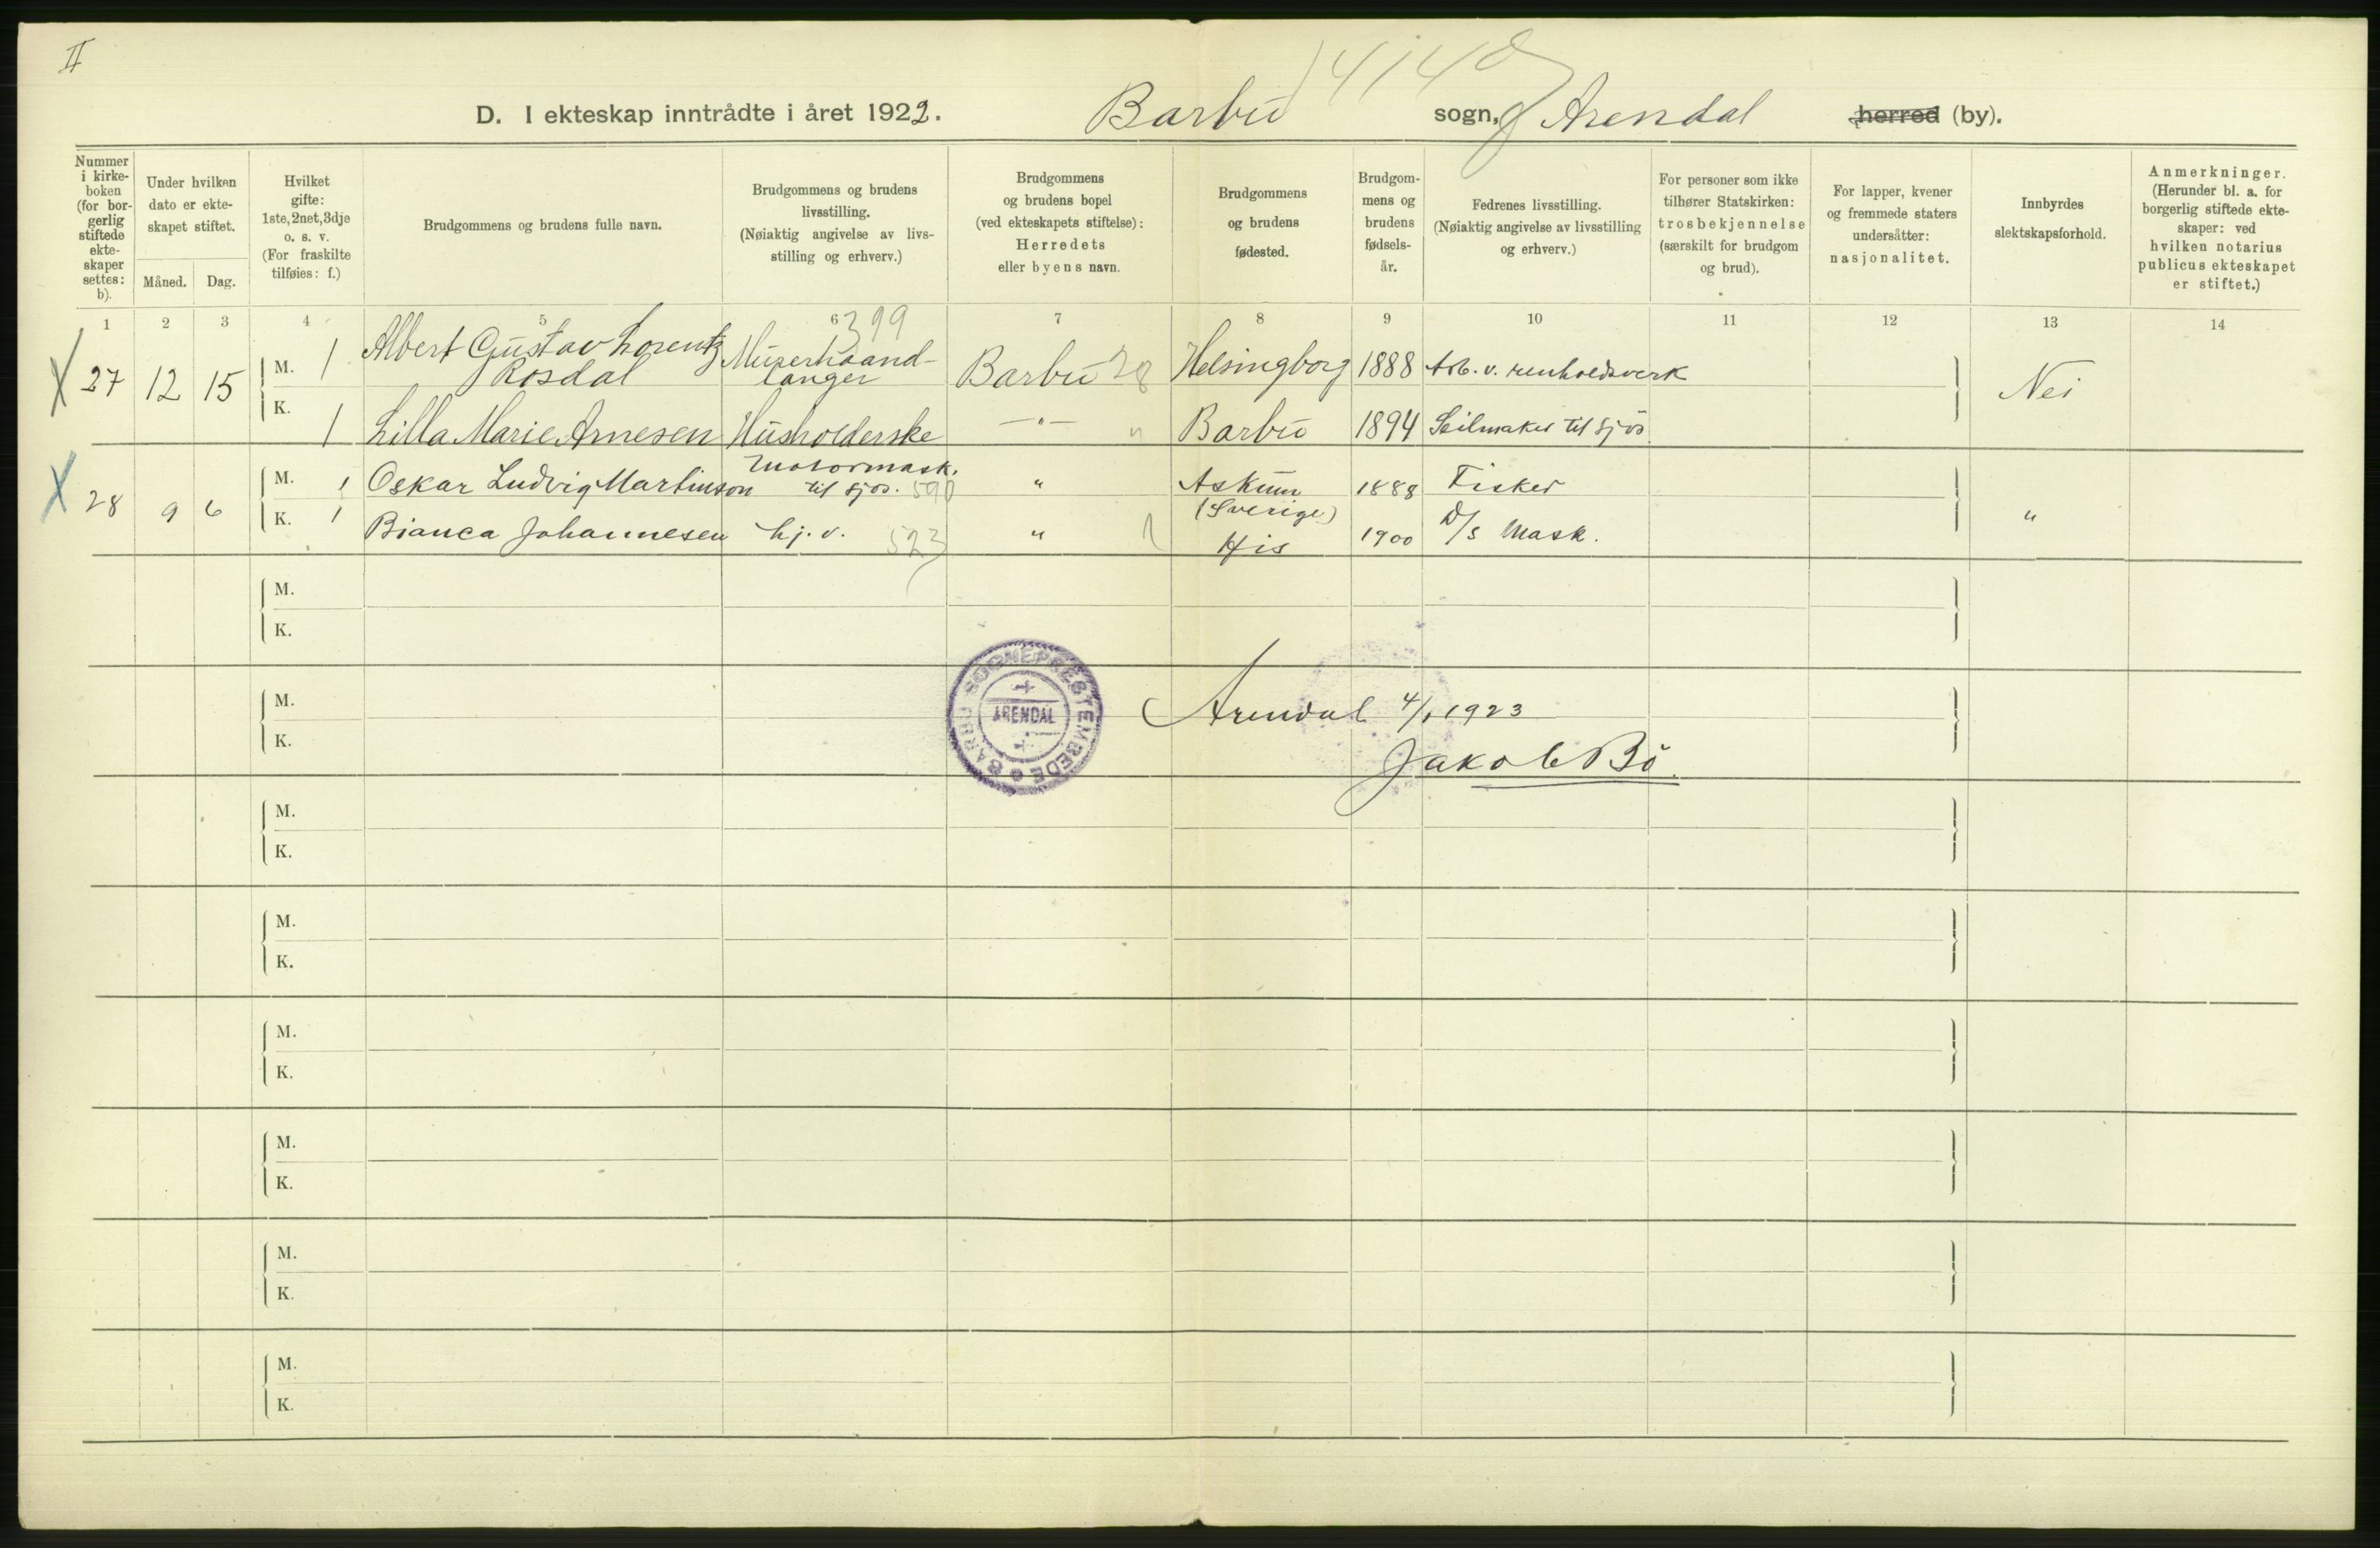 II
1414
D. I ekteskap inntrådte i året 1922. Barbu sogn, Arendal herred (by).
Nummer i kirke-boken (for bor-gerlig stiftede ekte-skaper settes: b).
Under hvilken dato er ekte-skapet stiftet.
Måned. Dag.
Hvilket gifte: 1ste, 2net, 3dje o. s. v. (For fraskilte tilføies: f.)
Brudgommens og brudens fulle navn.
Brudgommens og brudens livsstilling. (Nøiaktig angivelse av livs-stilling og erhverv.)
Brudgommens og brudens bopel (ved ekteskapets stiftelse): Herredets eller byens navn.
Brudgommens og brudens fødested.
Brudgom-mens og brudens fødsels-år.
Fedrenes livsstilling. (Nøiaktig angivelse av livsstilling og erhverv.)
For personer som ikke tilhører Statskirken: trosbekjennelse (særskilt for brudgom og brud).
For lapper, kvener og fremmede staters undersåtter: nasjonalitet.
Innbyrdes slektskapsforhold.
Anmerkninger. (Herunder bl. a. for borgerlig stiftede ekte-skaper: ved hvilken notarius publicus ekteskapet er stiftet.)
1 2 3 4 5 6 7 8 9 10 11 12 13 14
399
27 12 15 M. 1 Albert Gustav Lorentz Rosdal Murerhaand-langer Barbu 28 Helsingborg 1888 Arb. v. renholdsverk Nei
K. 1 Lilla Marie Arnesen Husholderske —"— " Barbu 1894 Seilmaker til sjøs
28 9 6 M. 1 Oskar Ludvig Martinson Motormask. til sjøs. 590 " Askum (Sverige) 1888 Fisker "
K. 1 Bianca Johannesen hj. v. 523 " His 1900 D/s Mask.
M.
K.
M.
K.
BARBU SOGNEPRESTEMBEDE
ARENDAL
Arendal 4/1 1923
Jakob Bö.
M.
K.
M.
K.
M.
K.
M.
K.
M.
K.
M.
K.